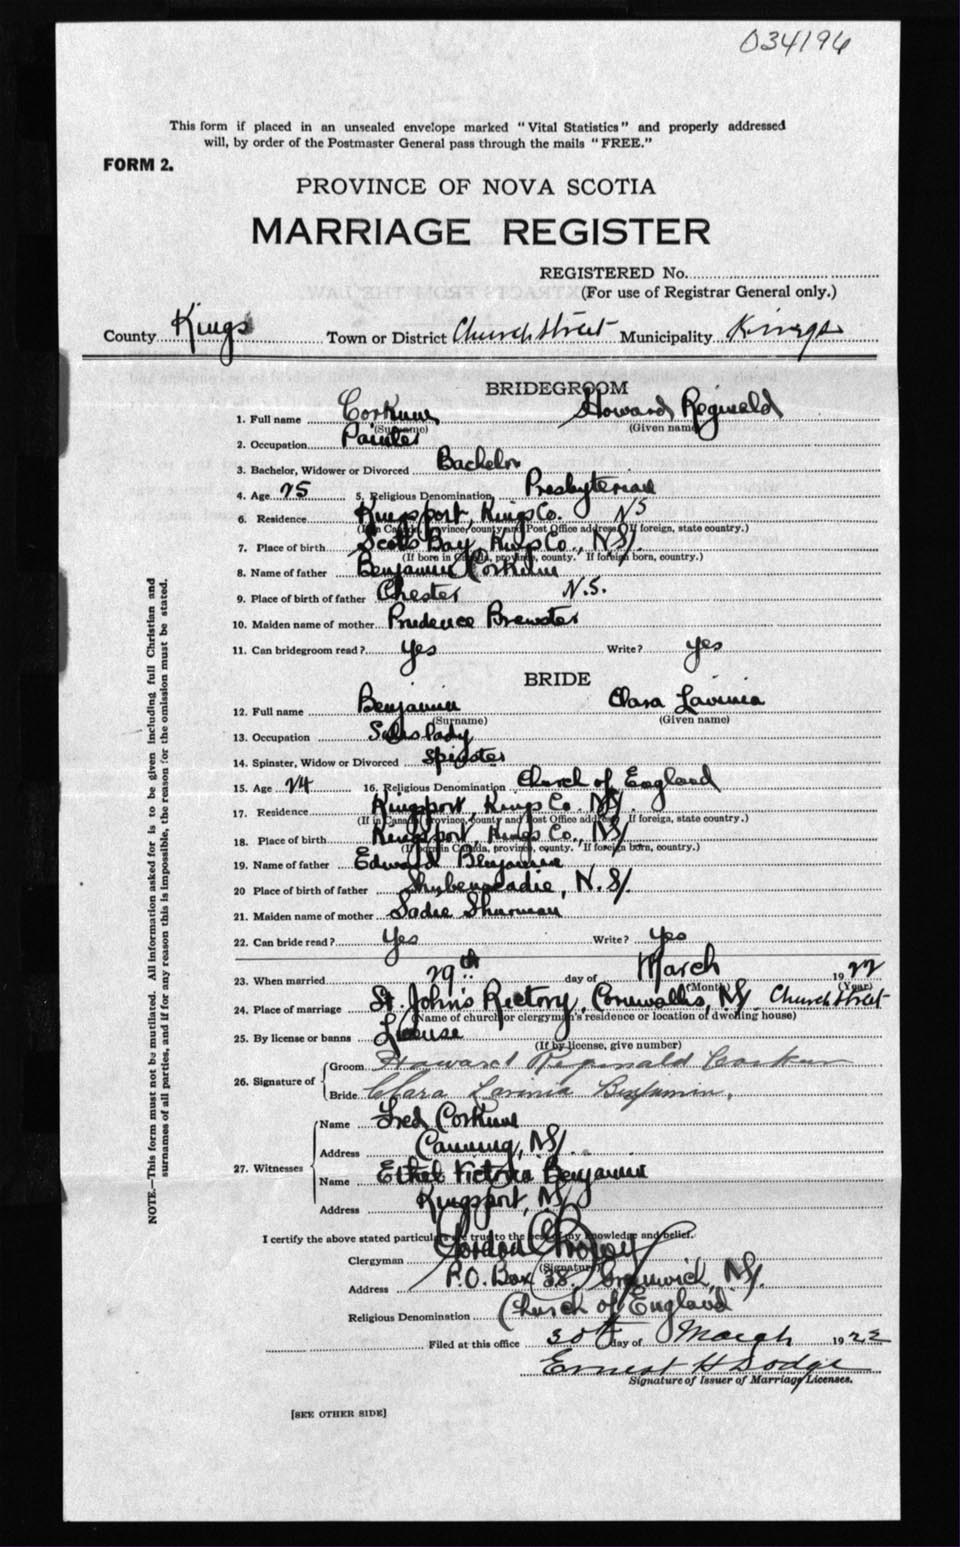 034196
This form if placed in an unsealed envelope marked "Vital Statistics" and properly addressed
will, by order of the Postmaster General pass through the mails "FREE."
FORM 2.
PROVINCE OF NOVA SCOTIA
MARRIAGE REGISTER
REGISTERED No.
(For use of Registrar General only.)
County Kings Town or District Church Street Municipality Kings
BRIDEGROOM
1. Full name Corkum Howard Reginald
(Surname) (Given name)
2. Occupation Painter
3. Bachelor, Widower or Divorced Bachelor
4. Age 25 5. Religious Denomination Presbyterian
6. Residence Kingsport, Kings Co. N S
(If in Canada, province, county and Post Office address. If foreign, state country.)
7. Place of birth Scots Bay, Kings Co., N.S.
(If born in Canada, province, county. If foreign born, country.)
8. Name of father Benjamin Corkum
9. Place of birth of father Chester N.S.
10. Maiden name of mother Prudence Brewster
11. Can bridegroom read? Yes Write? Yes
BRIDE
12. Full name Benjamin Clara Lavinia
(Surname) (Given name)
13. Occupation Saleslady
14. Spinster, Widow or Divorced Spinster
15. Age 24 16. Religious Denomination Church of England
17. Residence Kingsport, Kings Co. N.S.
(If in Canada, province, county and Post Office address. If foreign, state country.)
18. Place of birth Kingsport, Kings Co., N.S.
(If born in Canada, province, county. If foreign born, country.)
19. Name of father Edward Benjamin
20 Place of birth of father Shubenacadie, N.S.
21. Maiden name of mother Sadie Shurman
22. Can bride read? Yes Write? Yes
23. When married 29th day of March 1922
(Month) (Year)
24. Place of marriage St. John's Rectory, Cornwallis, N.S. Church Street
(Name of church or clergyman's residence or location of dwelling house)
25. By license or banns License
(If by license, give number)
26. Signature of
Groom Howard Reginald Corkum
Bride Clara Lavinia Benjamin.
27. Witnesses
Name Fred Corkum
Address Canning, N.S.
Name Ethel Victoria Benjamin
Address Kingsport, N.S.
I certify the above stated particulars are true to the best of my knowledge and belief.
Clergyman Gordon
(Signature)
Address P.O. Box 38. Greenwich, N.S.
Religious Denomination Church of England
Filed at this office 30th day of March 1922
Ernest H Dodge
Signature of Issuer of Marriage Licenses.
[SEE OTHER SIDE]
NOTE.—This form must not be mutilated. All information asked for is to be given including full Christian and
surnames of all parties, and if for any reason this is impossible, the reason for the omission must be stated.